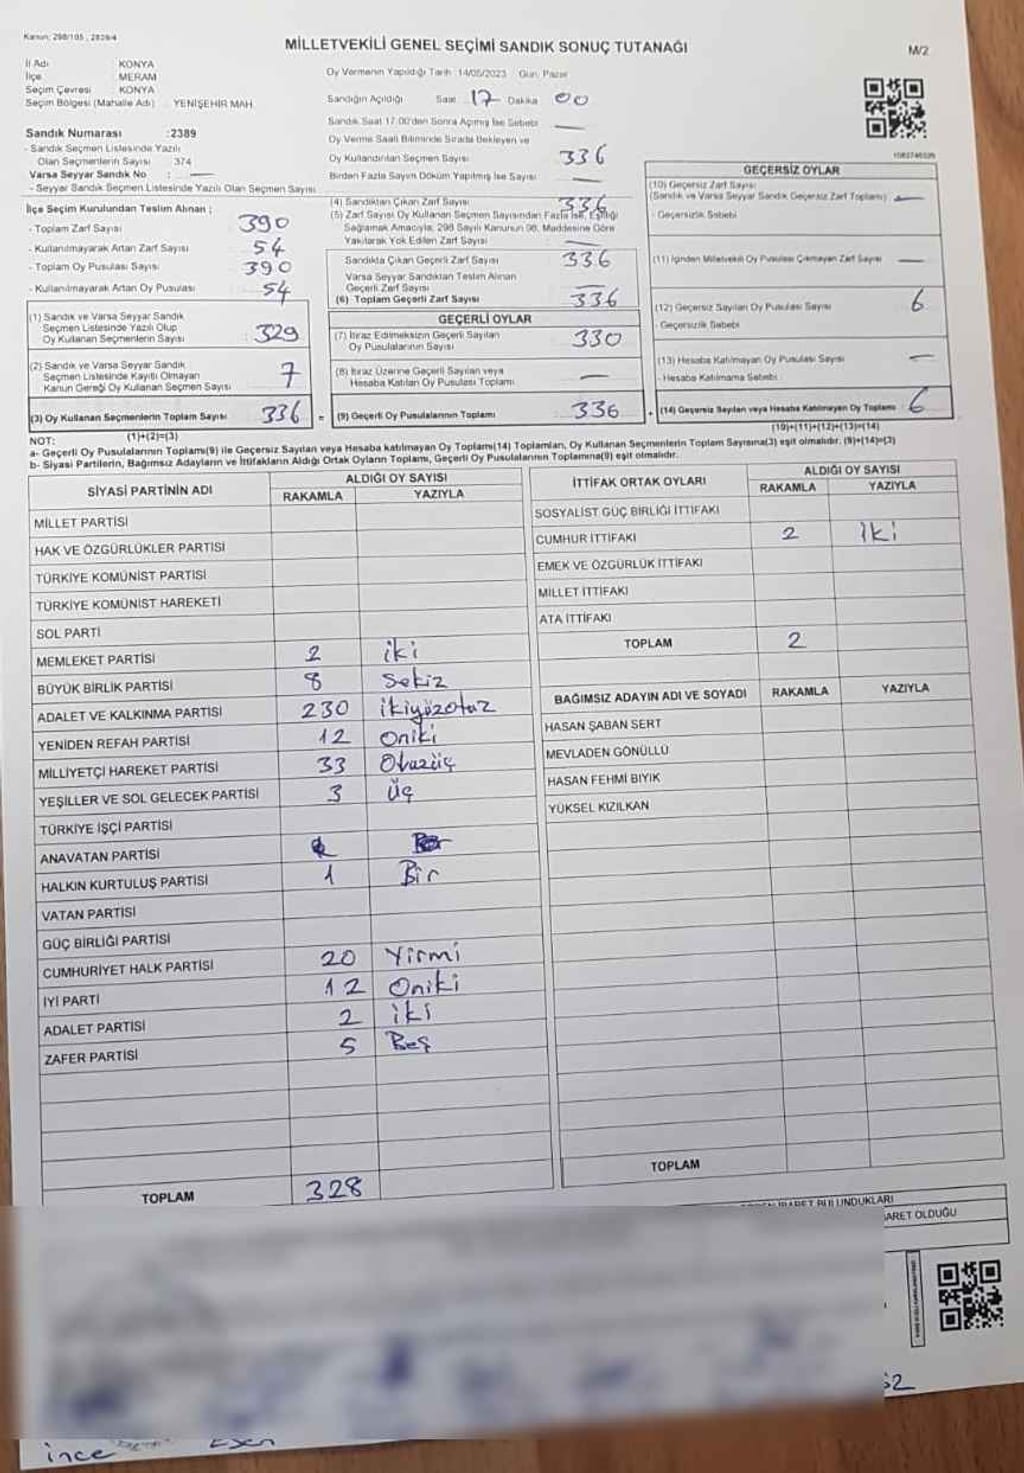 Kanun: 298/105, 2839/4
MİLLETVEKİLİ GENEL SEÇİMİ SANDIK SONUÇ TUTANAĞI
M/2
İl Adı KONYA
İlçe MERAM
Seçim Çevresi KONYA
Seçim Bölgesi (Mahalle Adı) YENİŞEHİR MAH.
Sandık Numarası :2389
- Sandık Seçmen Listesinde Yazılı
Olan Seçmenlerin Sayısı 374
Varsa Seyyar Sandık No : —
- Seyyar Sandık Seçmen Listesinde Yazılı Olan Seçmen Sayısı
Oy Vermenin Yapıldığı Tarih :14/05/2023 Gün: Pazar
Sandığın Açıldığı Saat 17 Dakika 00
Sandık Saat 17:00'den Sonra Açılmış İse Sebebi —
Oy Verme Saati Bitiminde Sırada Bekleyen ve
Oy Kullandırılan Seçmen Sayısı 336
Birden Fazla Sayım Döküm Yapılmış İse Sayısı —
İlçe Seçim Kurulundan Teslim Alınan :
- Toplam Zarf Sayısı 390
- Kullanılmayarak Artan Zarf Sayısı 54
- Toplam Oy Pusulası Sayısı 390
- Kullanılmayarak Artan Oy Pusulası 54
(1) Sandık ve Varsa Seyyar Sandık
Seçmen Listesinde Yazılı Olup
Oy Kullanan Seçmenlerin Sayısı : 329
(2) Sandık ve Varsa Seyyar Sandık
Seçmen Listesinde Kayıtlı Olmayan
Kanun Gereği Oy Kullanan Seçmen Sayısı 7
(3) Oy Kullanan Seçmenlerin Toplam Sayısı 336 =
(1)+(2)=(3)
(4) Sandıktan Çıkan Zarf Sayısı 336
(5) Zarf Sayısı Oy Kullanan Seçmen Sayısından Fazla İse, Eşitliği
Sağlamak Amacıyla, 298 Sayılı Kanunun 98. Maddesine Göre
Yakılarak Yok Edilen Zarf Sayısı —
Sandıkta Çıkan Geçerli Zarf Sayısı 336
Varsa Seyyar Sandıktan Teslim Alınan
Geçerli Zarf Sayısı —
(6) Toplam Geçerli Zarf Sayısı 336
GEÇERLİ OYLAR
(7) İtiraz Edilmeksizin Geçerli Sayılan
Oy Pusulalarının Sayısı 330
(8) İtiraz Üzerine Geçerli Sayılan veya
Hesaba Katılan Oy Pusulası Toplamı —
(9) Geçerli Oy Pusulalarının Toplamı 336 +
GEÇERSİZ OYLAR
(10) Geçersiz Zarf Sayısı
(Sandık ve Varsa Seyyar Sandık Geçersiz Zarf Toplamı) —
- Geçersizlik Sebebi
(11) İçinden Milletvekili Oy Pusulası Çıkmayan Zarf Sayısı —
(12) Geçersiz Sayılan Oy Pusulası Sayısı 6
- Geçersizlik Sebebi
(13) Hesaba Katılmayan Oy Pusulası Sayısı —
- Hesaba Katılmama Sebebi
(14) Geçersiz Sayılan veya Hesaba Katılmayan Oy Toplamı 6
(10)+(11)+(12)+(13)=(14)
NOT:
a- Geçerli Oy Pusulalarının Toplamı(9) ile Geçersiz Sayılan veya Hesaba katılmayan Oy Toplamı(14) Toplamları, Oy Kullanan Seçmenlerin Toplam Sayısına(3) eşit olmalıdır. (9)+(14)=(3)
b- Siyasi Partilerin, Bağımsız Adayların ve İttifakların Aldığı Ortak Oyların Toplamı, Geçerli Oy Pusulasının Toplamına(9) eşit olmalıdır.
SİYASİ PARTİNİN ADI ALDIĞI OY SAYISI
RAKAMLA YAZIYLA
MİLLET PARTİSİ
HAK VE ÖZGÜRLÜKLER PARTİSİ
TÜRKİYE KOMÜNİST PARTİSİ
TÜRKİYE KOMÜNİST HAREKETİ
SOL PARTİ
MEMLEKET PARTİSİ 2 iki
BÜYÜK BİRLİK PARTİSİ 8 Sekiz
ADALET VE KALKINMA PARTİSİ 230 ikiyüzotuz
YENİDEN REFAH PARTİSİ 12 Oniki
MİLLİYETÇİ HAREKET PARTİSİ 33 Otuzüç
YEŞİLLER VE SOL GELECEK PARTİSİ 3 Üç
TÜRKİYE İŞÇİ PARTİSİ
ANAVATAN PARTİSİ
HALKIN KURTULUŞ PARTİSİ 1 Bir
VATAN PARTİSİ
GÜÇ BİRLİĞİ PARTİSİ
CUMHURİYET HALK PARTİSİ 20 Yirmi
İYİ PARTİ 12 Oniki
ADALET PARTİSİ 2 iki
ZAFER PARTİSİ 5 Beş
TOPLAM 328
İTTİFAK ORTAK OYLARI ALDIĞI OY SAYISI
RAKAMLA YAZIYLA
SOSYALİST GÜÇ BİRLİĞİ İTTİFAKI
CUMHUR İTTİFAKI 2 iki
EMEK VE ÖZGÜRLÜK İTTİFAKI
MİLLET İTTİFAKI
ATA İTTİFAKI
TOPLAM 2
BAĞIMSIZ ADAYIN ADI VE SOYADI RAKAMLA YAZIYLA
HASAN ŞABAN SERT
MEVLADEN GÖNÜLLÜ
HASAN FEHMİ BIYIK
YÜKSEL KIZILKAN
TOPLAM
BULUNDUKLARI
ARET OLDUĞU
52
ince Esen